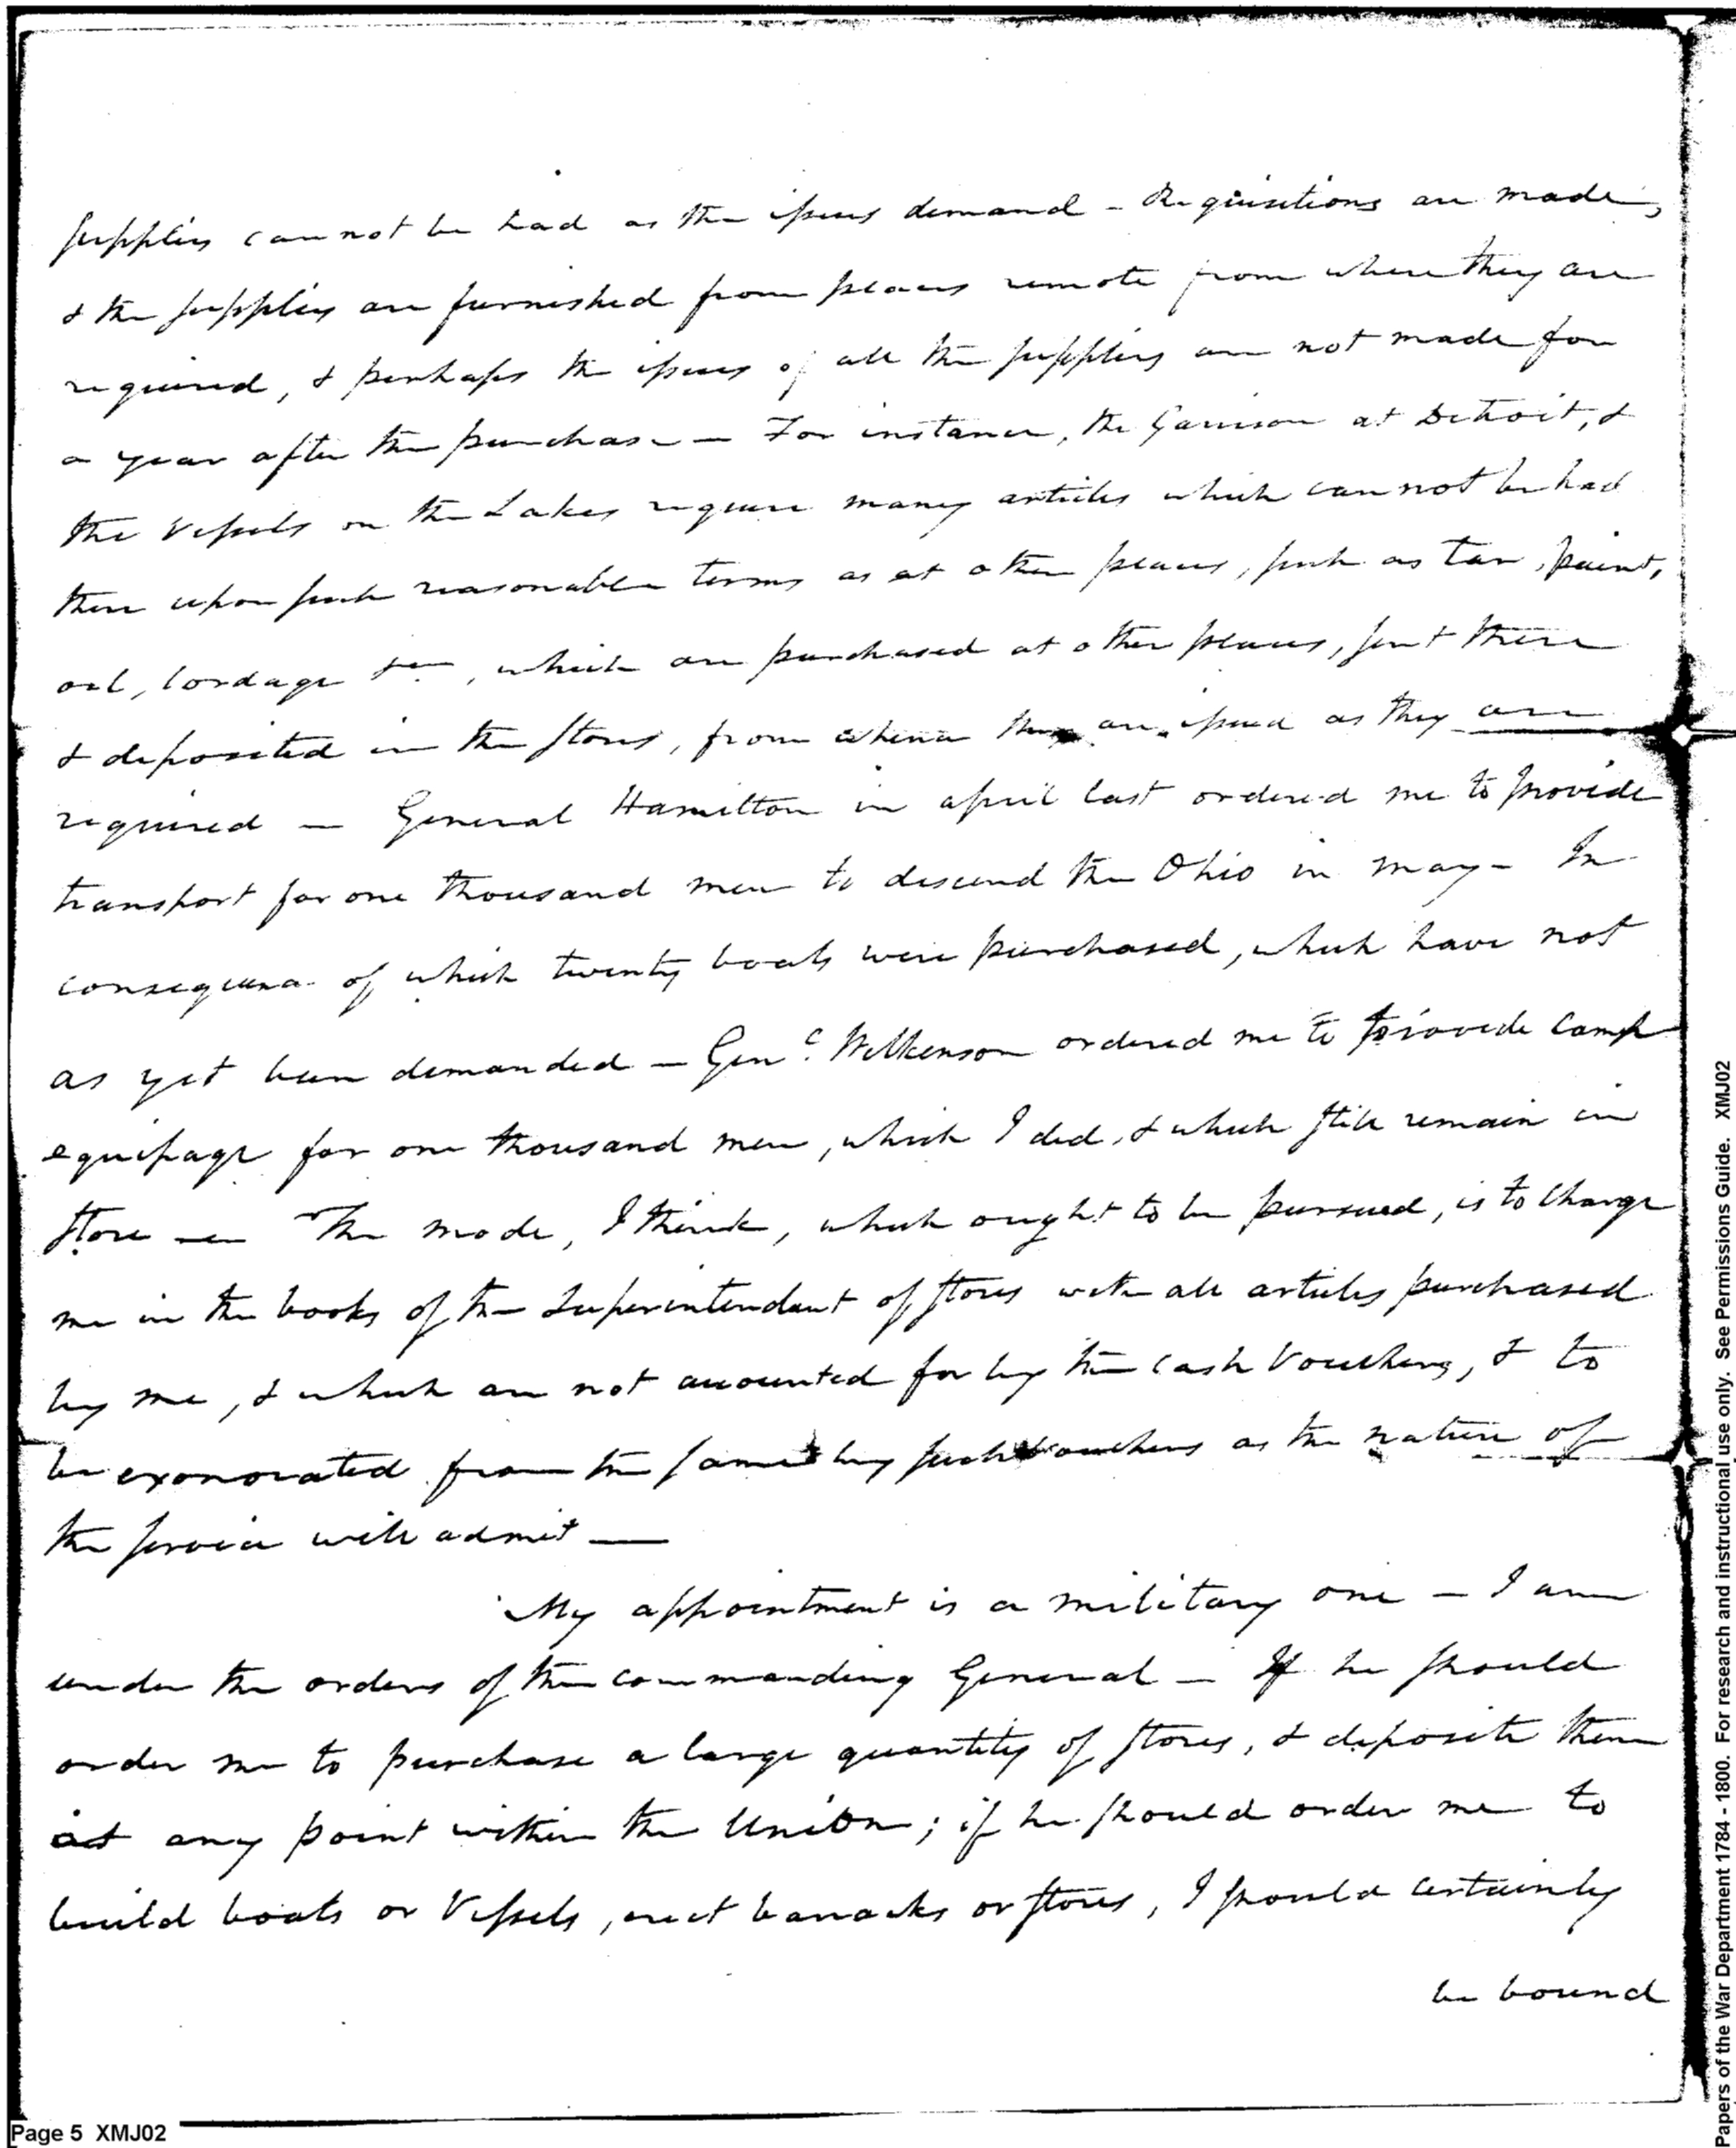 supplies cannot be had as the issues demand - Requisitions are made,
& the supplies are furnished from places remote from where they are
required, & perhaps the issues of all the supplies are not made for
a year after the purchase - For instance, the Garrison at Detroit, &
the Vessels on the Lakes require many articles which cannot be had
there upon such reasonable terms as at other places, such as Tar, paint,
oil, Cordage &c, which are purchased at other places, sent there
& deposited in the stores, from whence they are issued as they are
required — General Hamilton in april last ordered me to provide
transport for one thousand men to descend the Ohio in may - In
consequence of which twenty boats were purchased, which have not
as yet been demanded — Genl. Wilkenson ordered me to provide Camp
equipage for one thousand men, which I did, & which still remain in
store — The mode, I think, which ought to be pursued, is to charge
me in the books of the Superintendant of stores with all articles purchased
by me, & which are not accounted for by the Cash Vouchers, & to
be exonorated from the same by such vouchers as the nature of
the service will admit —
My appointment is a military one — I am
under the orders of the commanding General — If he should
order me to purchase a large quantity of stores, & deposite them
at any point within the Union; if he should order me to
build boats or Vessels, erect barracks or stores, I should certainly
be bound
Page 5 XMJ02
Papers of the War Department 1784 - 1800. For research and instructional use only. See Permissions Guide. XMJ02